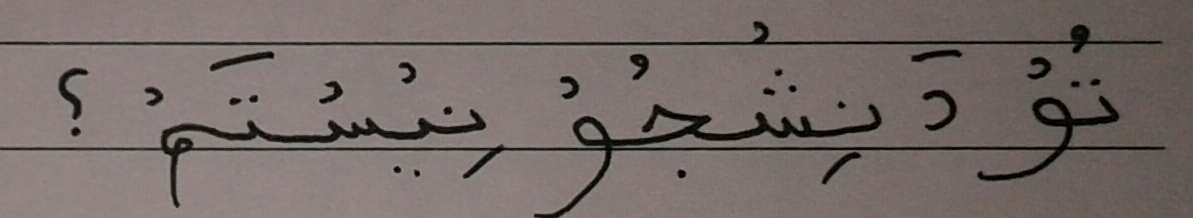 تُوْ دَنِشْجُوْ نِيْسْتَمْ ؟